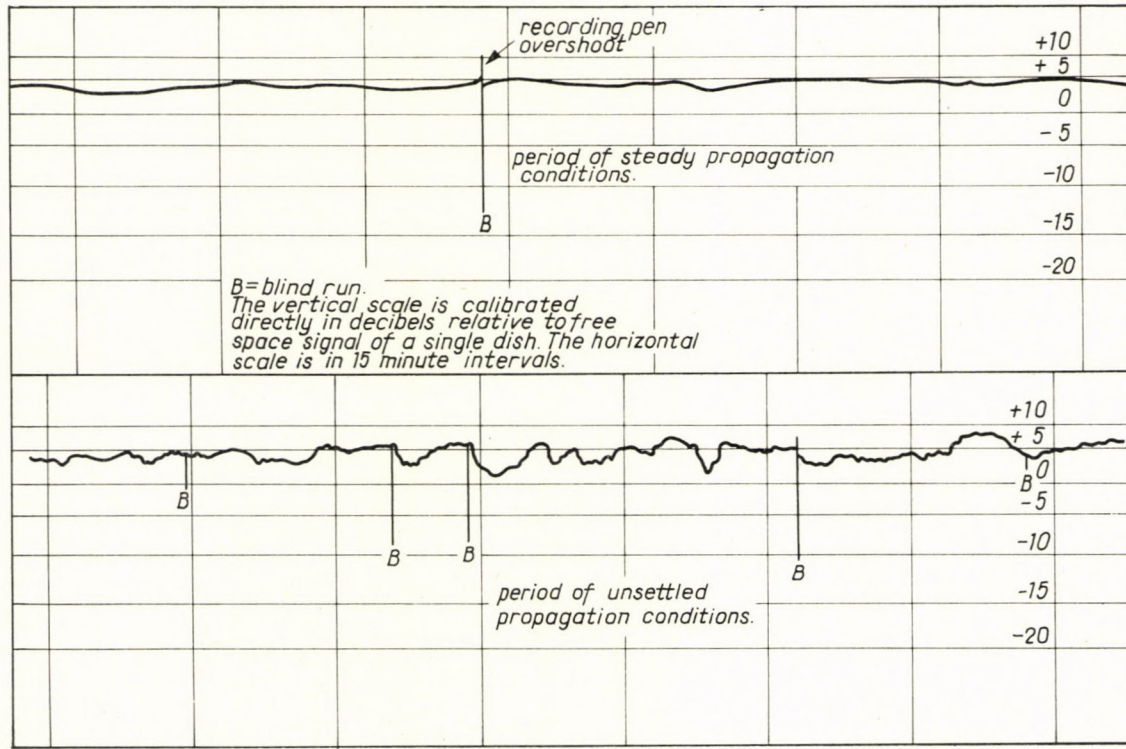 recording pen
overshoot
+10
+ 5
0
- 5
-10
-15
-20
period of steady propagation
conditions.
B
B=blind run.
The vertical scale is calibrated
directly in decibels relative to free
space signal of a single dish. The horizontal
scale is in 15 minute intervals.
+10
+ 5
0
-5
-10
-15
-20
B
B
B
B
B
period of unsettled
propagation conditions.